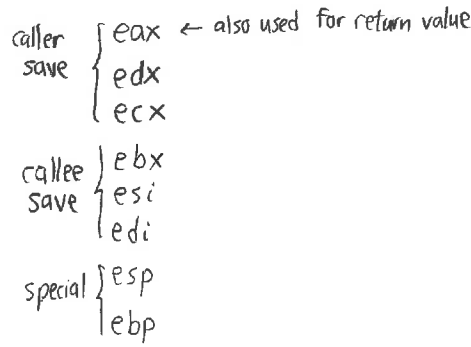 caller save
eax ← also used for return value
edx
ecx
callee save
ebx
esi
edi
special
esp
ebp